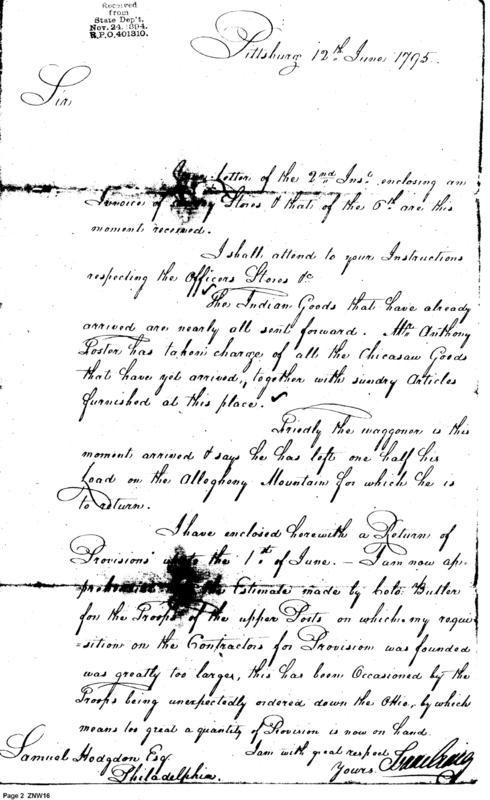 Received
from
State Dep't.
Nov. 24, 1894.
R.P.O. 401310.
Pittsburg 12th. June 1795.
Sir
Your Letter of the 2nd Inst. enclosing an
Invoice of Stores & that of the 6th are this
moment received.
I shall attend to your Instructions
respecting the Officers Stores &c
The Indian Goods that have already
arrived are nearly all sent forward. Mr. Anthony
Foster has taken charge of all the Chicasaw Goods
that have yet arrived, together with sundry Articles
furnished at this place.
the waggoner is this
moment arrived & says he has left one half his
Load on the Alleghony Mountain for which he is
to return.
I have enclosed herewith a Return of
Provisions the 1st. of June. — I am now ap-
the Estimate made by Colo. Butler
for the Troops of the upper Posts on which my requi
=sition on the Contractors for Provision was founded
was greatly too large, this has been Occasioned by the
Troops being unexpectedly ordered down the Ohio, by which
means too great a quantity of Provision is now on hand.
I am with great respect
Yours. Isaac Craig
Samuel Hodgdon Esq.
Philadelphia.
Page 2 ZNW16